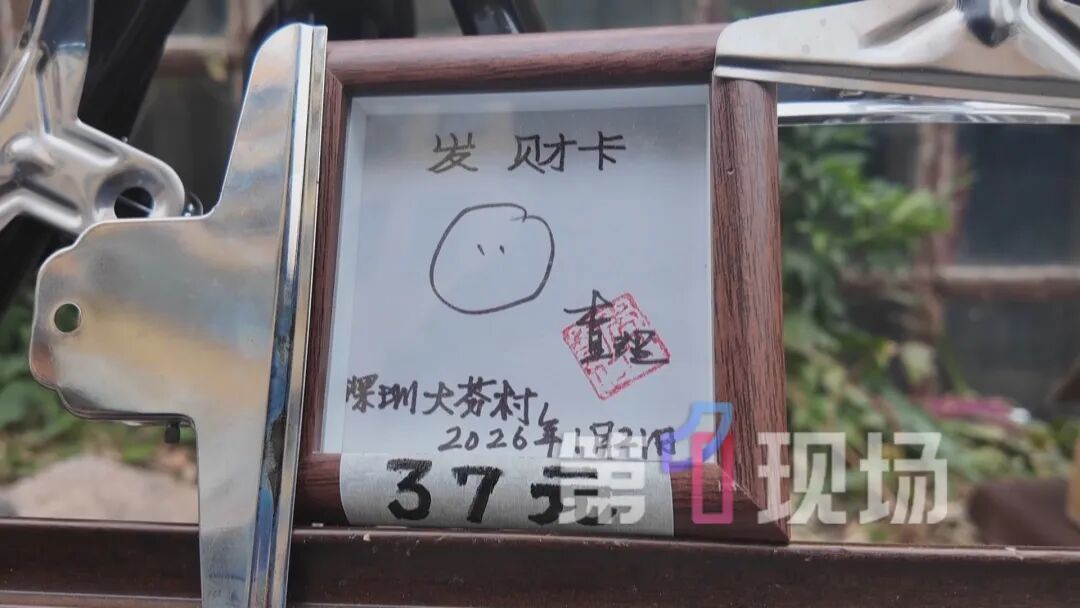 发财卡
查理
深圳大芬村,
2026年1月21日
37元
第1现场